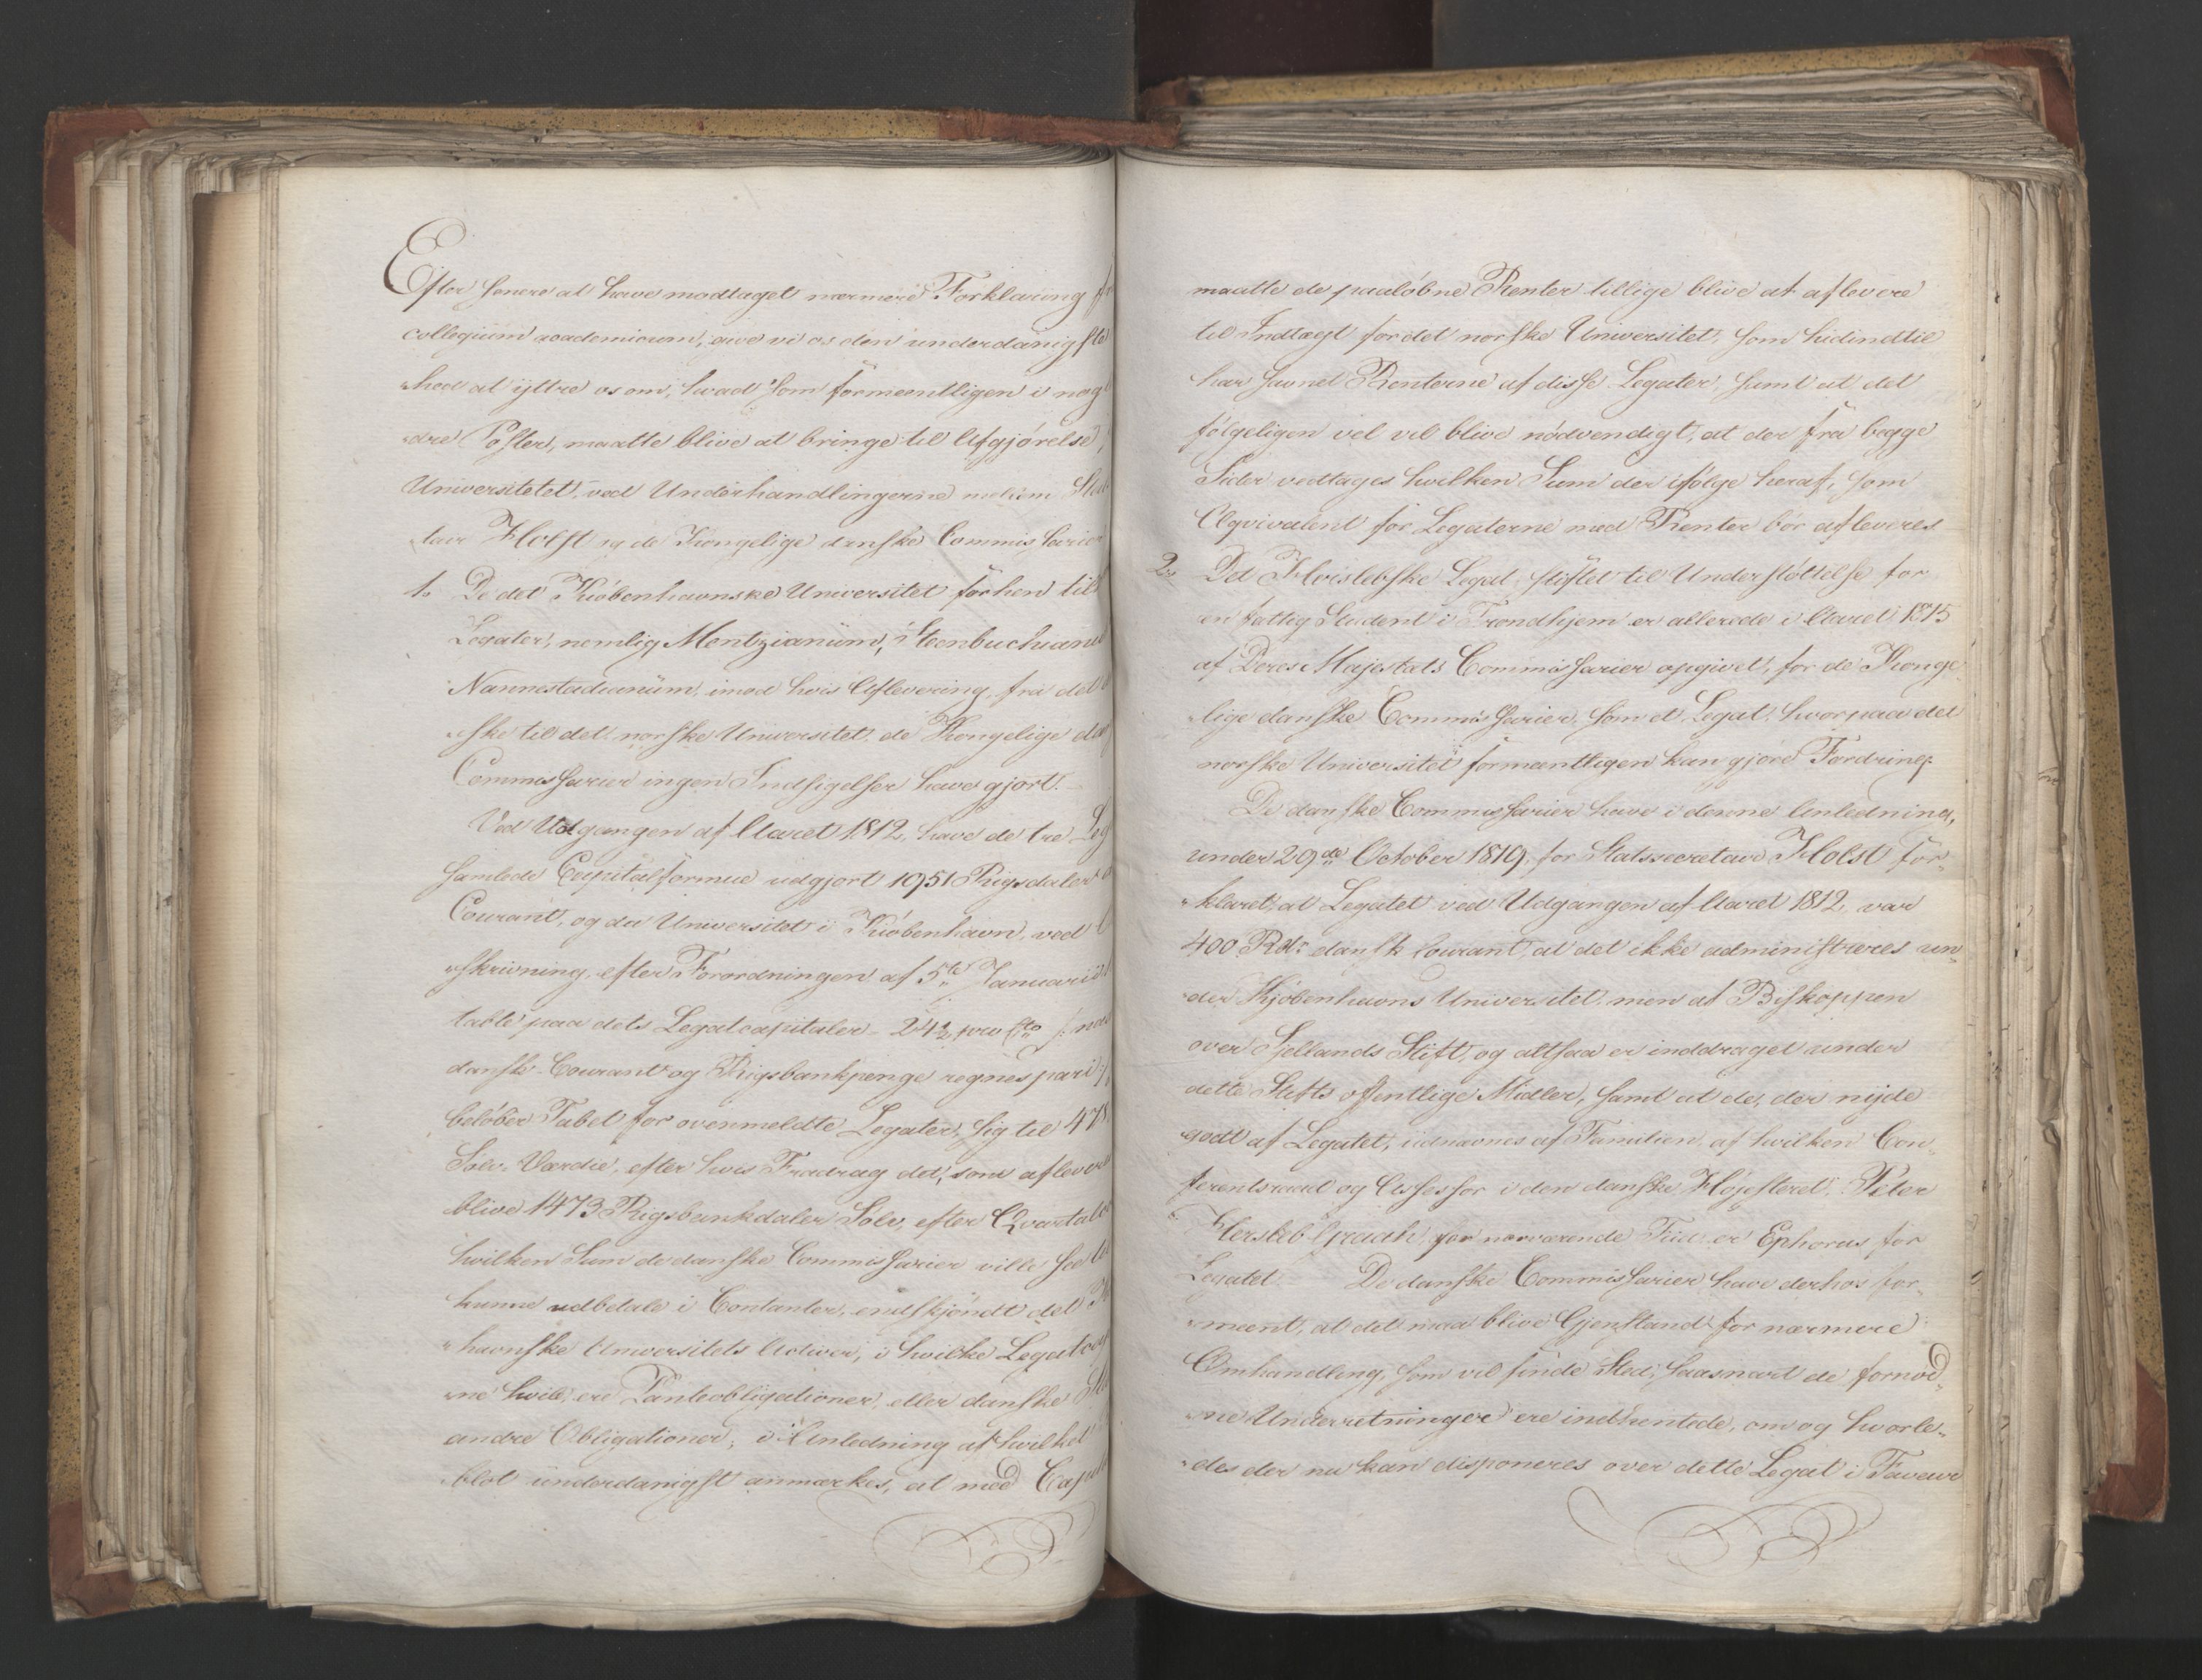 Efter senere at have modtaget nærmere Forklaring
collegium academicum, give vi os den underdanigste
-hed at yttre os om, hvad som formeentligen i
-dre Poster, maatte blive at bringe til Afgjørelse,
Universitetet, ved Underhandlingerne mellem
-tair Holst og de Kongelige danske Commissarier
1. De det Kiøbenhavnske Universitet forhen
Legater, nemlig Mentzianum, Steenbuchian
Nannestadianum, imod hvis Aflevering, fra det
-ske til det norske Universitet, de Kongelige
Commissarier ingen Indsigelser have gjort.
Ved Udgangen af Aaret 1812, have de tre
samlede Capitalformue udgjort 1951 Rigsdaler
Courant, og da Universitetet i Kiøbenhavn, ved
-skrivning, efter Forordningen af 5te Januarii
tabte paa dets Legatcapitaler 24½ pro Cto
dansk Courant og Rigsbankpenge regnes pari
beløber Tabet for ovenmeldte Legater, sig til 478
Sølv-Værdie, efter hvis Fradrag det, som
blive 1473 Rigsbankdaler Sølv, efter
hvilken Sum de danske Commissarier ville see
kunne udbetale i Contanter, endskjøndt det
-havnske Universitets Activer, i hvilke
-ne hvile, ere Panteobligationer, eller danske
andre Obligationer; i Anledning af hvilket
blot underdanigst anmærkes, at med
maatte de paaløbne Renter tillige blive at aflevere
til Indtægt for det norske Universitet, som hidindtil
har savnet Renterne af disse Legater, samt at det
følgeligen vel vil blive nødvendigt, at der fra begge
Sider vedtages hvilken Sum der ifølge heraf, som
Æqvivalent for Legaterne med Renter bør afleveres
2. Det Herslebske Legat, stiftet til Understøttelse for
en fattig Student i Trondhjem er allerede i Aaret 1815
af Deres Majestæts Commissarier opgivet, for de Konge-
-lige danske Commissarier, som et Legat, hvorpaa det
norske Universitet formeentligen kan gjøre Fordring.
De danske Commissarier have i denne Anledning,
under 29de October 1819, for Statssecretair Holst for-
-klaret, at Legatet ved Udgangen af Aaret 1812, var
400 Rdr dansk Courant, at det ikke administreres un-
-der Kjøbenhavns Universitet, men af Biskoppen
over Sjellands Stift, og altsaa er inddraget under
dette Stifts offentlige Midler, samt at de, der nyde
godt af Legatet, udnævnes af Familien, af hvilken Con-
ferentsraad og Assessor i den danske Højesteret, Peter
Hersleb per nærværende Tiid er Ephorus for
Legatet. De danske Commissarier have derhos for-
-meent, at det maa blive Gjenstand for nærmere
Omhandling, som vil finde Sted, saasnart de fornød-
-ne Underretninger ere indhentede, om og hvorle-
-des der nu kan disponeres over dette Legat i Faveur